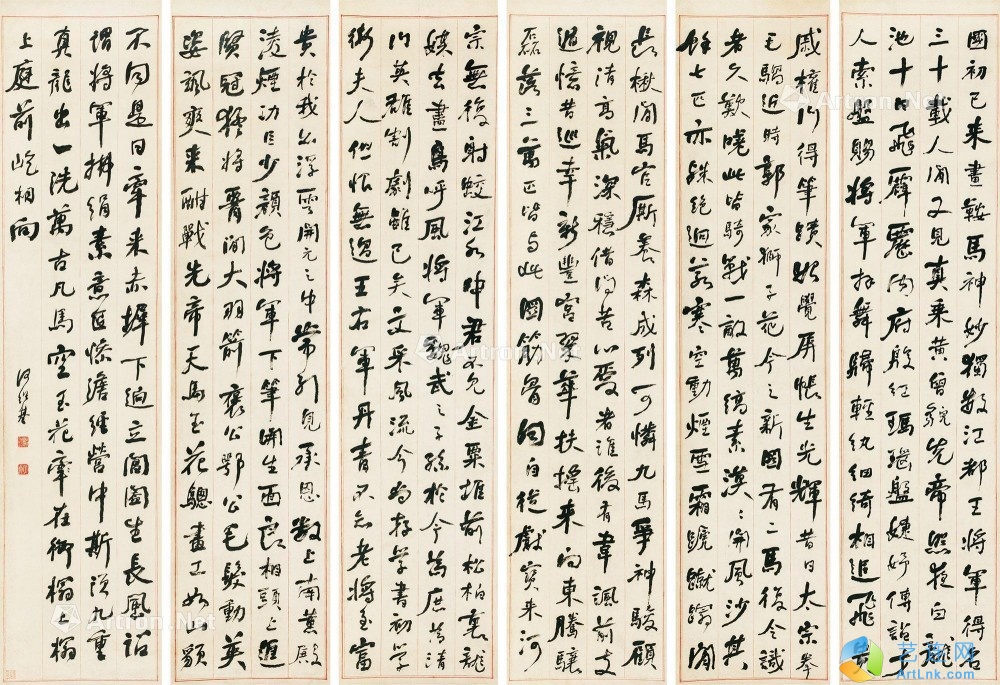 國初已來畫鞍馬神妙獨數江都王將軍得名
三十載人間又見真乘黃曾貌先帝照夜白龍
池十日飛霹靂內府殷紅瑪瑙盤婕妤傳詔才
人索盤賜將軍拜舞歸輕紈細綺相追飛貴
戚權門得筆蹟始覺屏帳生光輝昔日太宗拳
毛騧近時郭家獅子花今之新圖有二馬復令識
者久歎嗟此皆騎戰一敵萬縞素漠〻開風沙其
餘七匹亦殊絕迥若寒空動煙雪霜蹏蹴蹋間
長楸間馬官廝養森成列可憐九馬爭神駿顧
視清高氣深穩借問苦心愛者誰後有韋諷前支
遁憶昔巡幸新豐宮翠華扶搖來向東騰驤
磊落三萬匹皆與此圖筋骨同自從獻寶來河
宗無復射蛟江水中君不見金粟堆前松柏裏龍
媒去盡鳥呼風將軍魏武之子孫於今為庶為清
門英雄割劇雖已矣文采風流今尚存學書初學
衛夫人但恨無過王右軍丹青不知老將至富
貴於我如浮雲開元之中常引見承恩數上南薰殿
淩煙功臣少顏色將軍下筆開生面良相頭上進
賢冠猛將腰間大羽箭褒公鄂公毛髮動英
姿颯爽來酣戰先帝天馬玉花驄畫工如山貌
不同是日牽來赤墀下迥立閶闔生長風詔
謂將軍拂絹素意匠慘澹經營中斯須九重
真龍出一洗萬古凡馬空玉花牽在御榻上榻
上庭前屹相向
何紹基
Artron.Net
艺术网
ArtLnk.Com